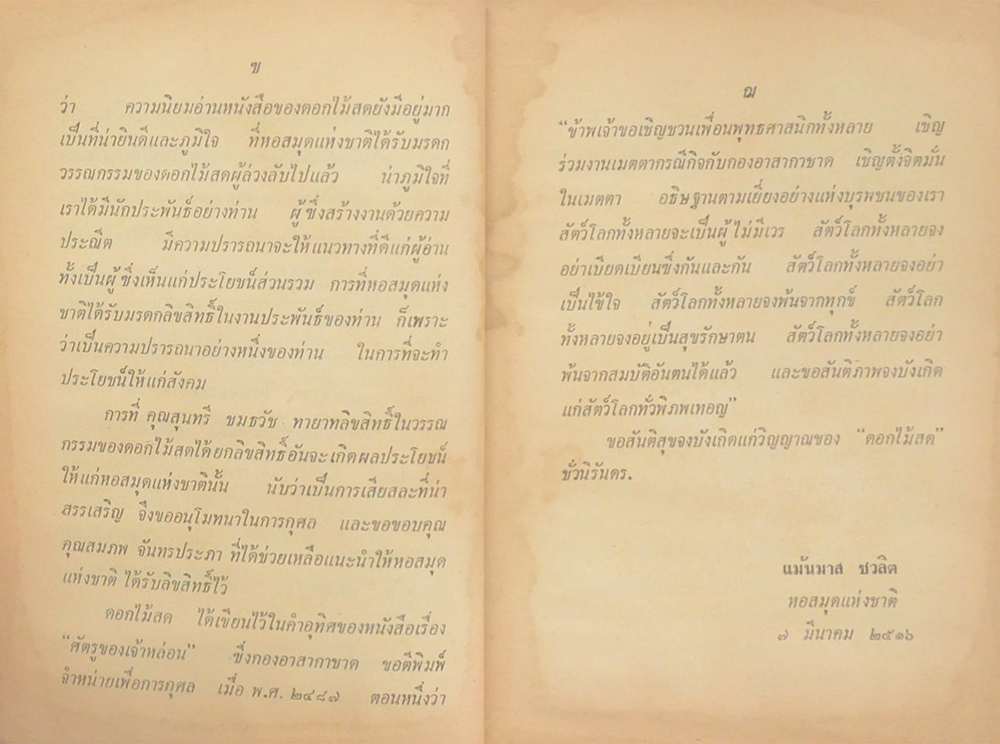 ข
ว่า ความนิยมอ่านหนังสือของดอกไม้สดยังมีอยู่มาก
เป็นที่น่ายินดีและภูมิใจ ที่หอสมุดแห่งชาติได้รับมรดก
วรรณกรรมของดอกไม้สดผู้ล่วงลับไปแล้ว น่าภูมิใจที่
เราได้มีนักประพันธ์อย่างท่าน ผู้ซึ่งสร้างงานด้วยความ
ประณีต มีความปรารถนาจะให้แนวทางที่ดีแก่ผู้อ่าน
ทั้งเป็นผู้ซึ่งเห็นแก่ประโยชน์ส่วนรวม การที่หอสมุดแห่ง
ชาติได้รับมรดกลิขสิทธิ์ในงานประพันธ์ของท่าน ก็เพราะ
ว่าเป็นความปรารถนาอย่างหนึ่งของท่าน ในการที่จะทำ
ประโยชน์ให้แก่สังคม
การที่ คุณสุนทรี ชมธวัช ทายาทลิขสิทธิ์ในวรรณ
กรรมของดอกไม้สดได้ยกลิขสิทธิ์อันจะเกิดผลประโยชน์
ให้แก่หอสมุดแห่งชาตินั้น นับว่าเป็นการเสียสละที่น่า
สรรเสริญ จึงขออนุโมทนาในการกุศล และขอขอบคุณ
คุณสมภพ จันทรประภา ที่ได้ช่วยเหลือแนะนำให้หอสมุด
แห่งชาติ ได้รับลิขสิทธิ์ไว้
ดอกไม้สด ได้เขียนไว้ในคำอุทิศของหนังสือเรื่อง
“ศัตรูของเจ้าหล่อน” ซึ่งกองอาสากาชาด ขอตีพิมพ์
จำหน่ายเพื่อการกุศล เมื่อ พ.ศ. ๒๔๘๗ ตอนหนึ่งว่า
ฌ
“ข้าพเจ้าขอเชิญชวนเพื่อนพุทธศาสนิกทั้งหลาย เชิญ
ร่วมงานเมตตากรณีกิจกับกองอาสากาชาด เชิญตั้งจิตมั่น
ในเมตตา อธิษฐานตามเยี่ยงอย่างแห่งบุรพชนของเรา
สัตว์โลกทั้งหลายจะเป็นผู้ไม่มีเวร สัตว์โลกทั้งหลายจง
อย่าเบียดเบียนซึ่งกันและกัน สัตว์โลกทั้งหลายจงอย่า
เป็นไข้ใจ สัตว์โลกทั้งหลายจงพ้นจากทุกข์ สัตว์โลก
ทั้งหลายจงอยู่เป็นสุขรักษาตน สัตว์โลกทั้งหลายจงอย่า
พ้นจากสมบัติอันตนได้แล้ว และขอสันติภาพจงบังเกิด
แก่สัตว์โลกทั่วพิภพเทอญ”
ขอสันติสุขจงบังเกิดแก่วิญญาณของ “ดอกไม้สด”
ชั่วนิรันดร.
แม้นมาส ชวลิต
หอสมุดแห่งชาติ
๗ มีนาคม ๒๕๑๖